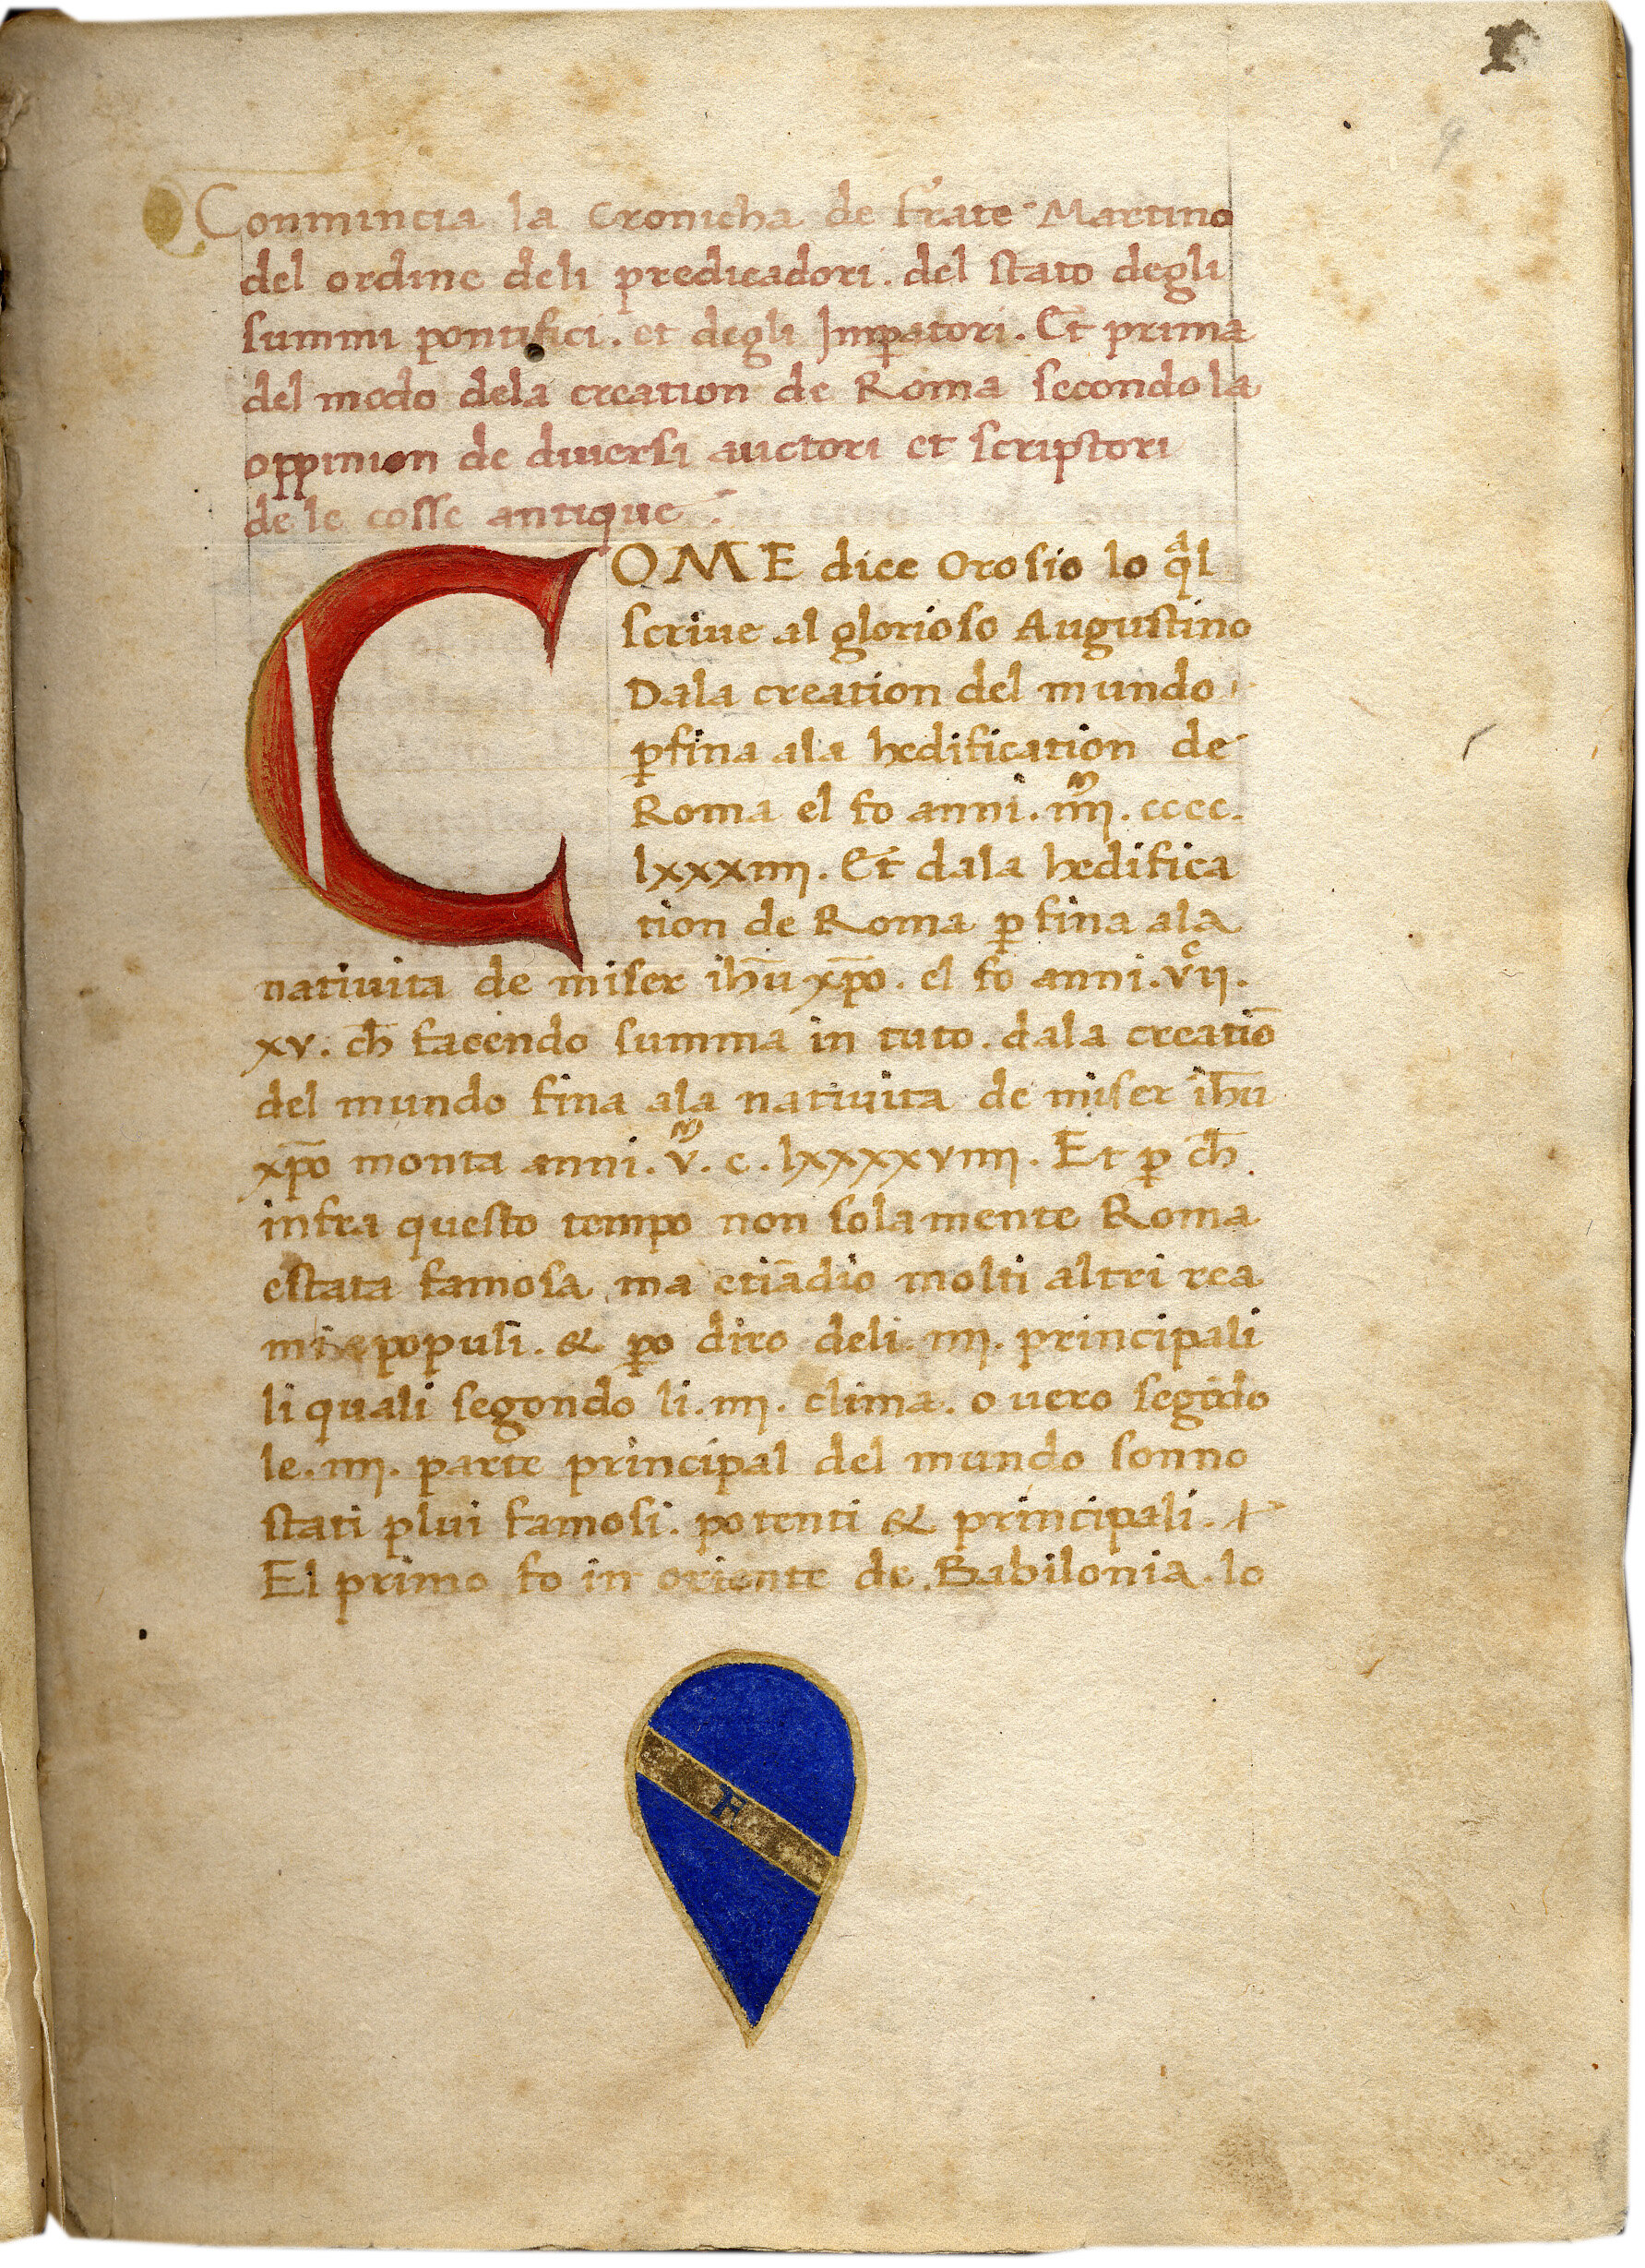 Conmincia la Cronicha de frate Martino
del ordine deli predicadori. del stato degli
summi pontifici. et degli Imꝑatori. Et prima
del modo dela creation de Roma secondo la
oppinion de diuersi auctori et scriptori
de le cosse antique.
COME dice Orosio lo qͣl
scriue al glorioso Augustino
Dala creation del mundo
ꝑfina ala hedification de
Roma el fo anni. iiijᵐ. cccc.
lxxxiiij. Et dala hedifica
tion de Roma ꝑ fina ala
natiuita de miser ihū xp̄o. el fo anni. vijᶜ.
xv. ch̄ facendo summa in tuto. dala creatiō
del mundo fina ala natiuita de miser ihū
xp̄o monta anni. vᵐ. c. lxxxxviiij. Et ꝑ ch̄
infra questo tempo non solamente Roma
estata famosa ma etiādio molti altri rea
mi populi. & ꝑo diro deli. iiij. principali
li quali segondo li. iiij. clima. o uero segōdo
le. iiij. parte principal del mundo sonno
stati plui famosi. potenti & principali.
El primo fo in oriente de Babilonia. lo